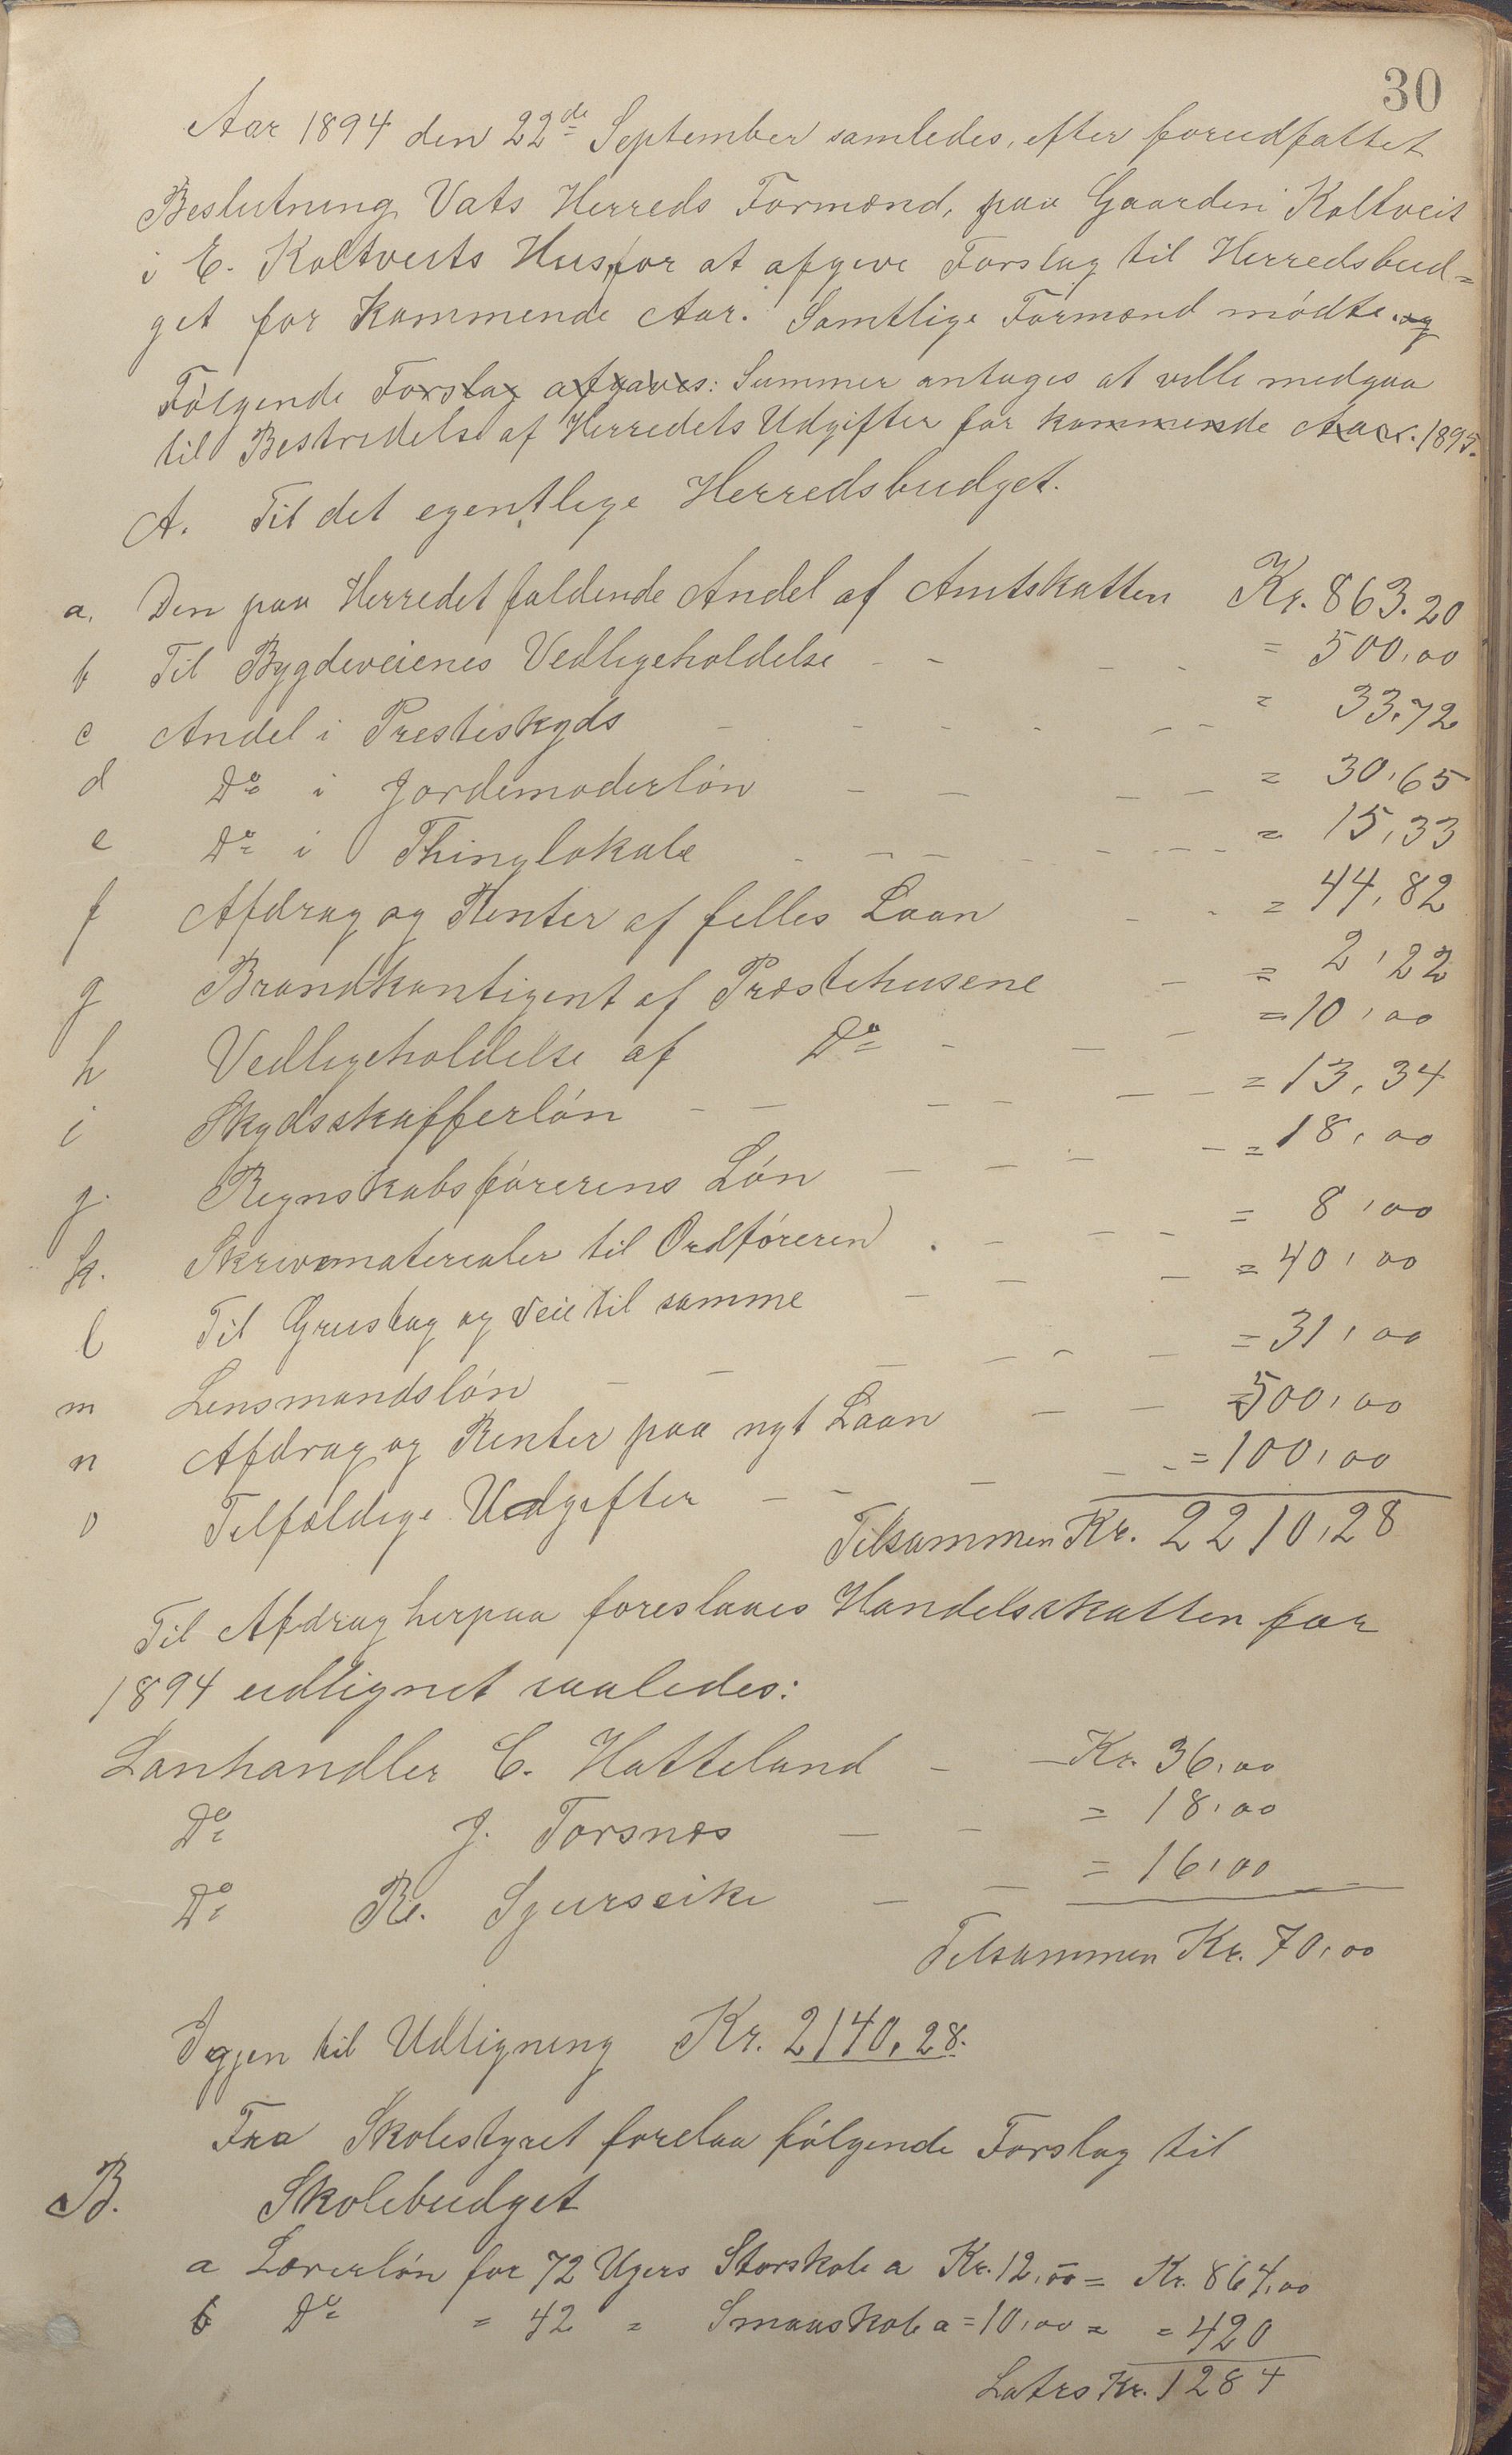 30
Aar 1894 den 22de September samledes, efter forudfattet
Beslutning Vats Herreds Formænd, paa Gaarden Koltveit
i E. Koltveits Hus, for at afgive Forslag til Herredsbud=
get for kommende Aar. Samtlige Formænd mødte. og
Følgende Forslag afgaves: Summer antages at ville medgaa
til Bestridelse af Herredets Udgifter for kommende Aar. 1895.
A. Til det egentlige Herredsbudget.
a. Den paa Herredet faldende Andel af Amtskatten Kr. 863.20
b Til Bygdeveienes Vedligeholdelse - - - - = 500,00
c Andel i Prestiskyds - - - - - = 33,72
d Do i Jordemoderløn - - - - = 30,65
e Do i Thinglokale - - - - - - = 15,33
f Afdrag og Renter af felles Laan - - = 44,82
g Brandkontigent af Præstehusene - = 2,22
h Vedligeholdelse af Do - - - = 10,00
i Skydsskafferløn - - - - - - = 13,34
j. Regnskabsførerens Løn - - - - = 18,00
k. Skrivematerialer til Ordføreren . - - - = 8,00
l Til Grustag og Veie til samme - - - = 40,00
m Lensmandsløn - - - - - - = 31,00
n Afdrag og Renter paa nyt Laan - - = 500,00
o Tilfældige Udgifter - - - - - = 100,00
Tilsammen Kr. 2210,28
Til Afdrag herpaa foreslaaes Handelsskatten for
1894 udlignet saaledes:
Lanhandler C. Hatteland - - Kr. 36,00
Do J. Torsnæs - - = 18,00
Do R. Sjurseike - - = 16,00
Tilsammen Kr. 70,00
Igjen til Udligning Kr. 2140,28.
Fra Skolestyret forelaa følgende Forslag til
B. Skolebudget
a Lærerløn for 72 Ugers Storskole a Kr. 12,00 = Kr. 864,00
b Do = 42 = Smaaskole a = 10,00 = = 420
Latrs Kr. 1284